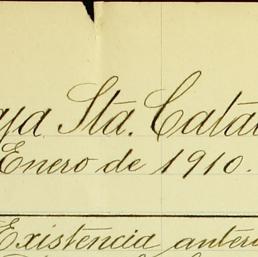 aja Sta. Cata
Enero de 1910.
Existencia anter